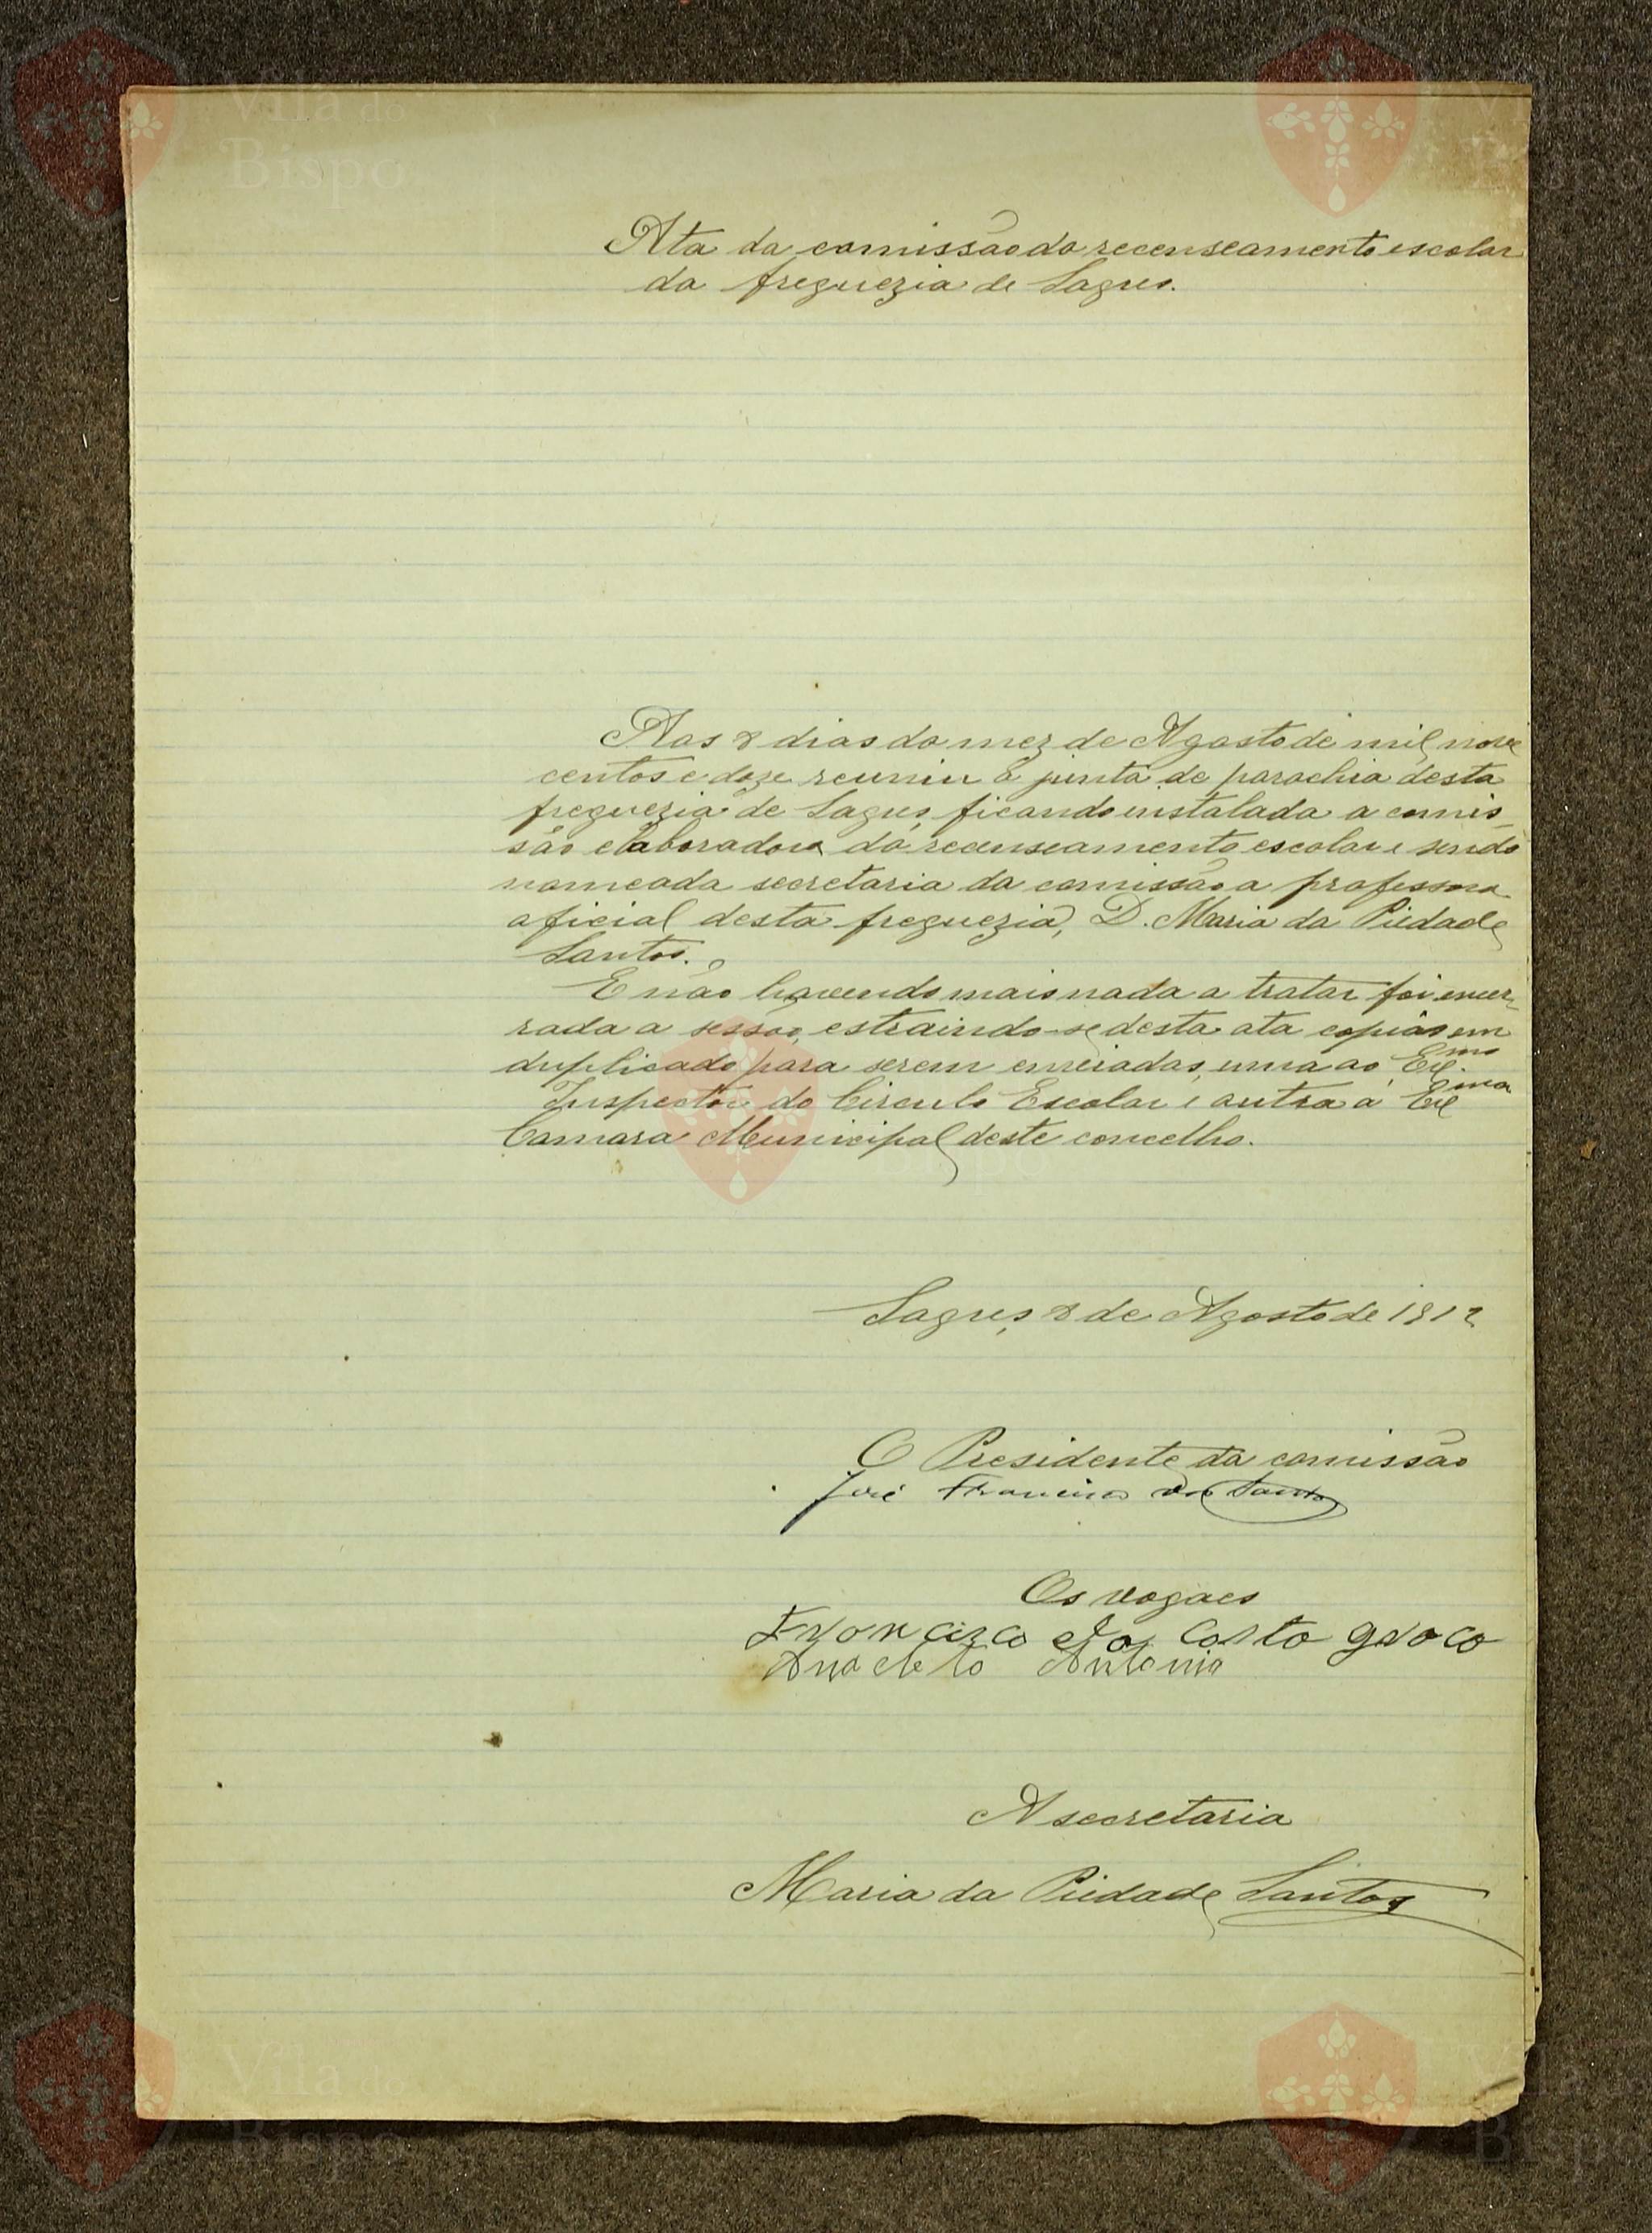 Vila do
Bispo
Ata da comissão do recenseamento escolar
da freguezia de Sagres.
Aos 8 dias do mez de Agosto de mil nove
centos e doze reuniu a junta de parochia desta
freguezia de Sagres, ficando instalada a comis-
são elaboradora do recenseamento escolar e sendo
nomeada secretaria da comissão a professora
oficial desta freguezia, D. Maria da Piedade
Santos.
E não havendo mais nada a tratar foi encer-
rada a sessão, estraindo-se desta ata copias em
duplicado para serem enviadas, uma ao Exmo
Inspector do Circulo Escolar e outra á Exma
Camara Municipal deste concelho.
Sagres, 8 de Agosto de 1912
O Presidente da comissão
José Francisco dos Santos
Os vogaes
Francisco da Costa
Anacleto Antonio
A secretaria
Maria da Piedade Santos
Vila do
Bispo